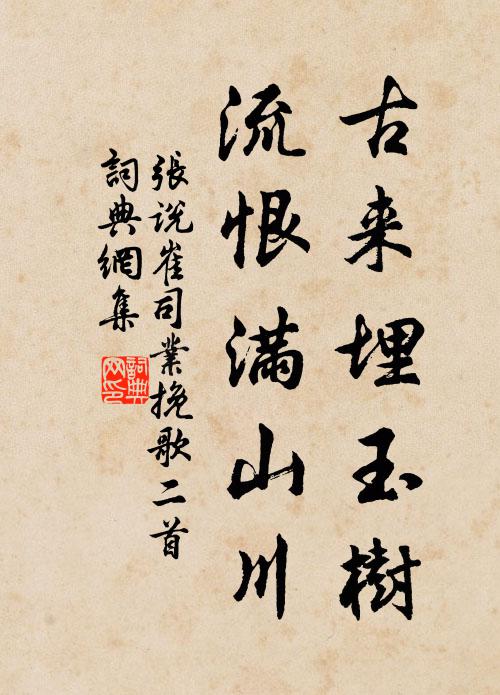 古来埋玉樹
流恨滿山川
張說崔司業挽歌二首
詞典網集
詞典网印